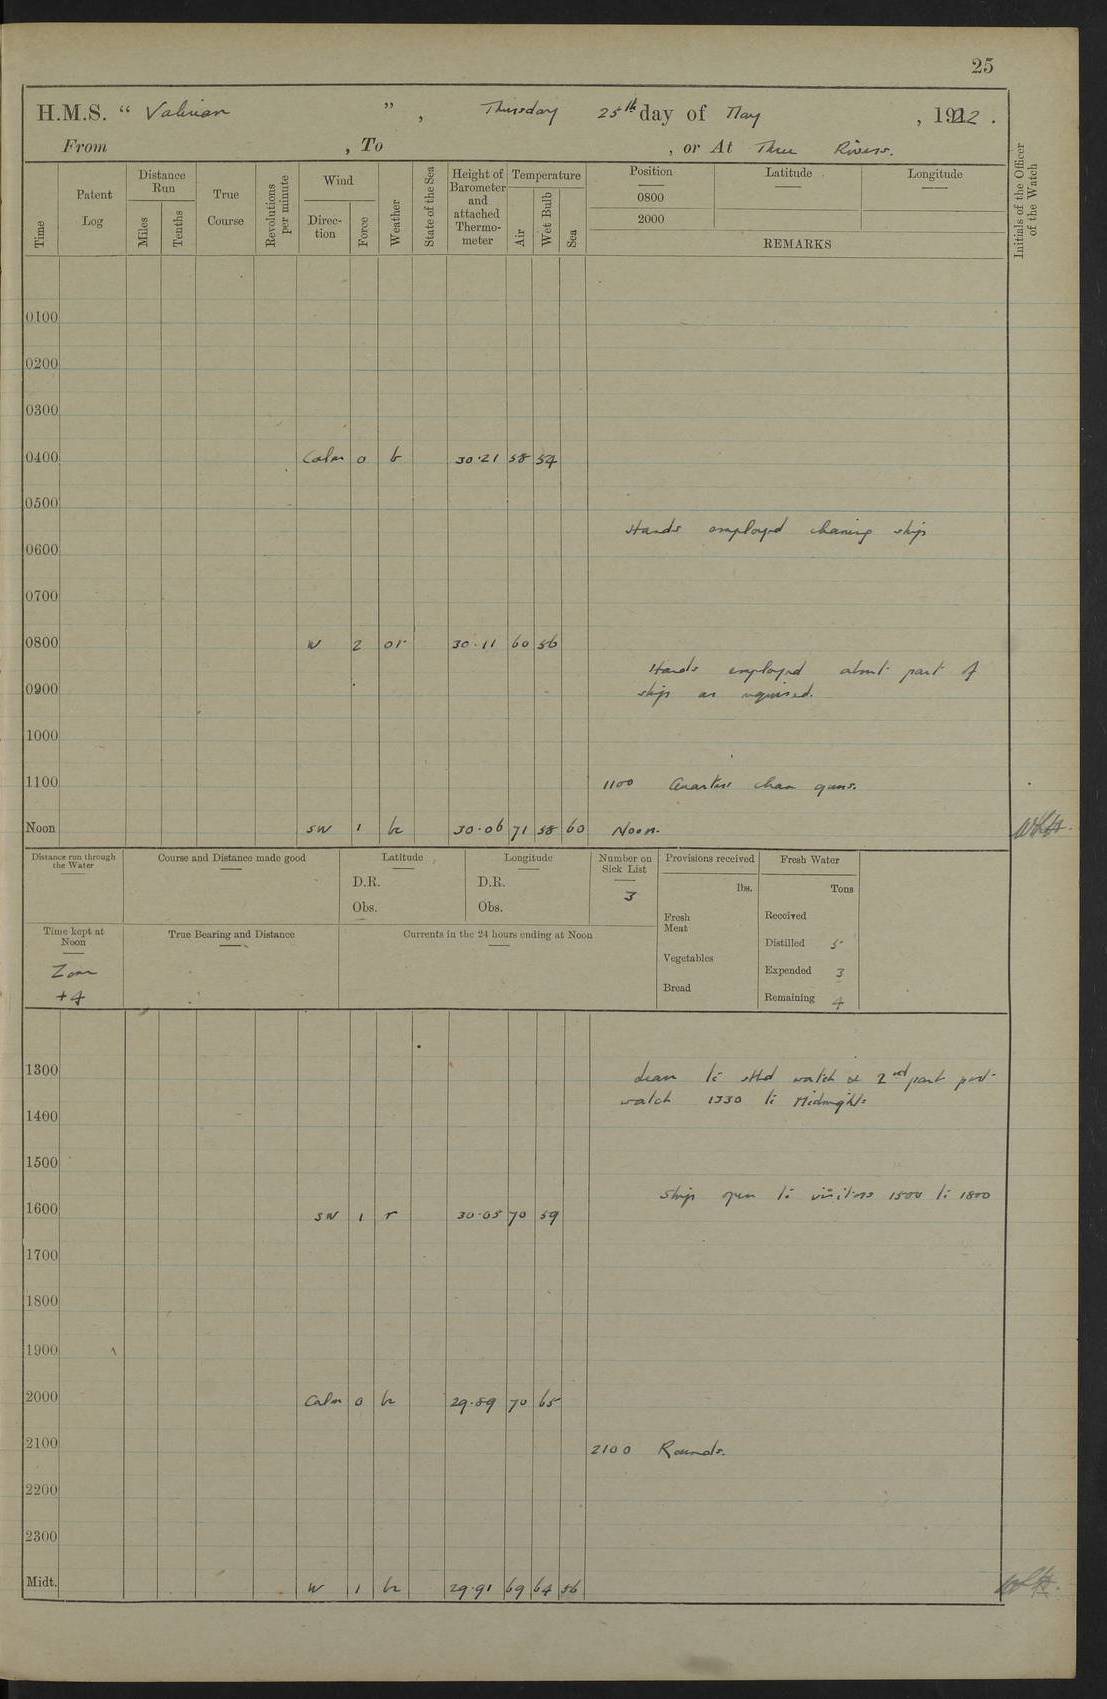 25
H.M.S. “ Valerian ” , Thursday 25th day of May , 1922 .
From , To , or At Three Rivers.
Time
Patent Log
Distance Run
Miles
Tenths
True Course
Revolutions per minute
Wind
Direc-tion
Force
Weather
State of the Sea
Height of Barometer and attached Thermo-meter
Temperature
Air
Wet Bulb
Sea
Position
0800
2000
Latitude
Longitude
REMARKS
Initials of the Officer of the Watch
0100
0200
0300
0400 Calm 0 b 30.21 58 54
0500
Hands employed cleaning ship
0600
0700
0800 W 2 or 30.11 60 56
Hands employed about part of
0900 ship as required.
1000
1100 1100 Quarters clean guns.
Noon SW 1 bc 30.06 71 58 60 Noon.
Distance run through the Water
Course and Distance made good
Latitude
D.R.
Obs.
Longitude
D.R.
Obs.
Number on Sick List
3
Provisions received
lbs.
Fresh Meat
Vegetables
Bread
Fresh Water
Tons
Received
Distilled 5
Expended 3
Remaining 4
Time kept at Noon
Zone
+4
True Bearing and Distance
Currents in the 24 hours ending at Noon
1300 Leave to stbd watch & 2nd part port
watch 1330 to Midnight.
1400
1500
Ship open to visitors 1500 to 1800
1600 SW 1 r 30.05 70 59
1700
1800
1900
2000 Calm 0 bc 29.89 70 65
2100 2100 Rounds.
2200
2300
Midt. W 1 bc 29.91 69 64 56